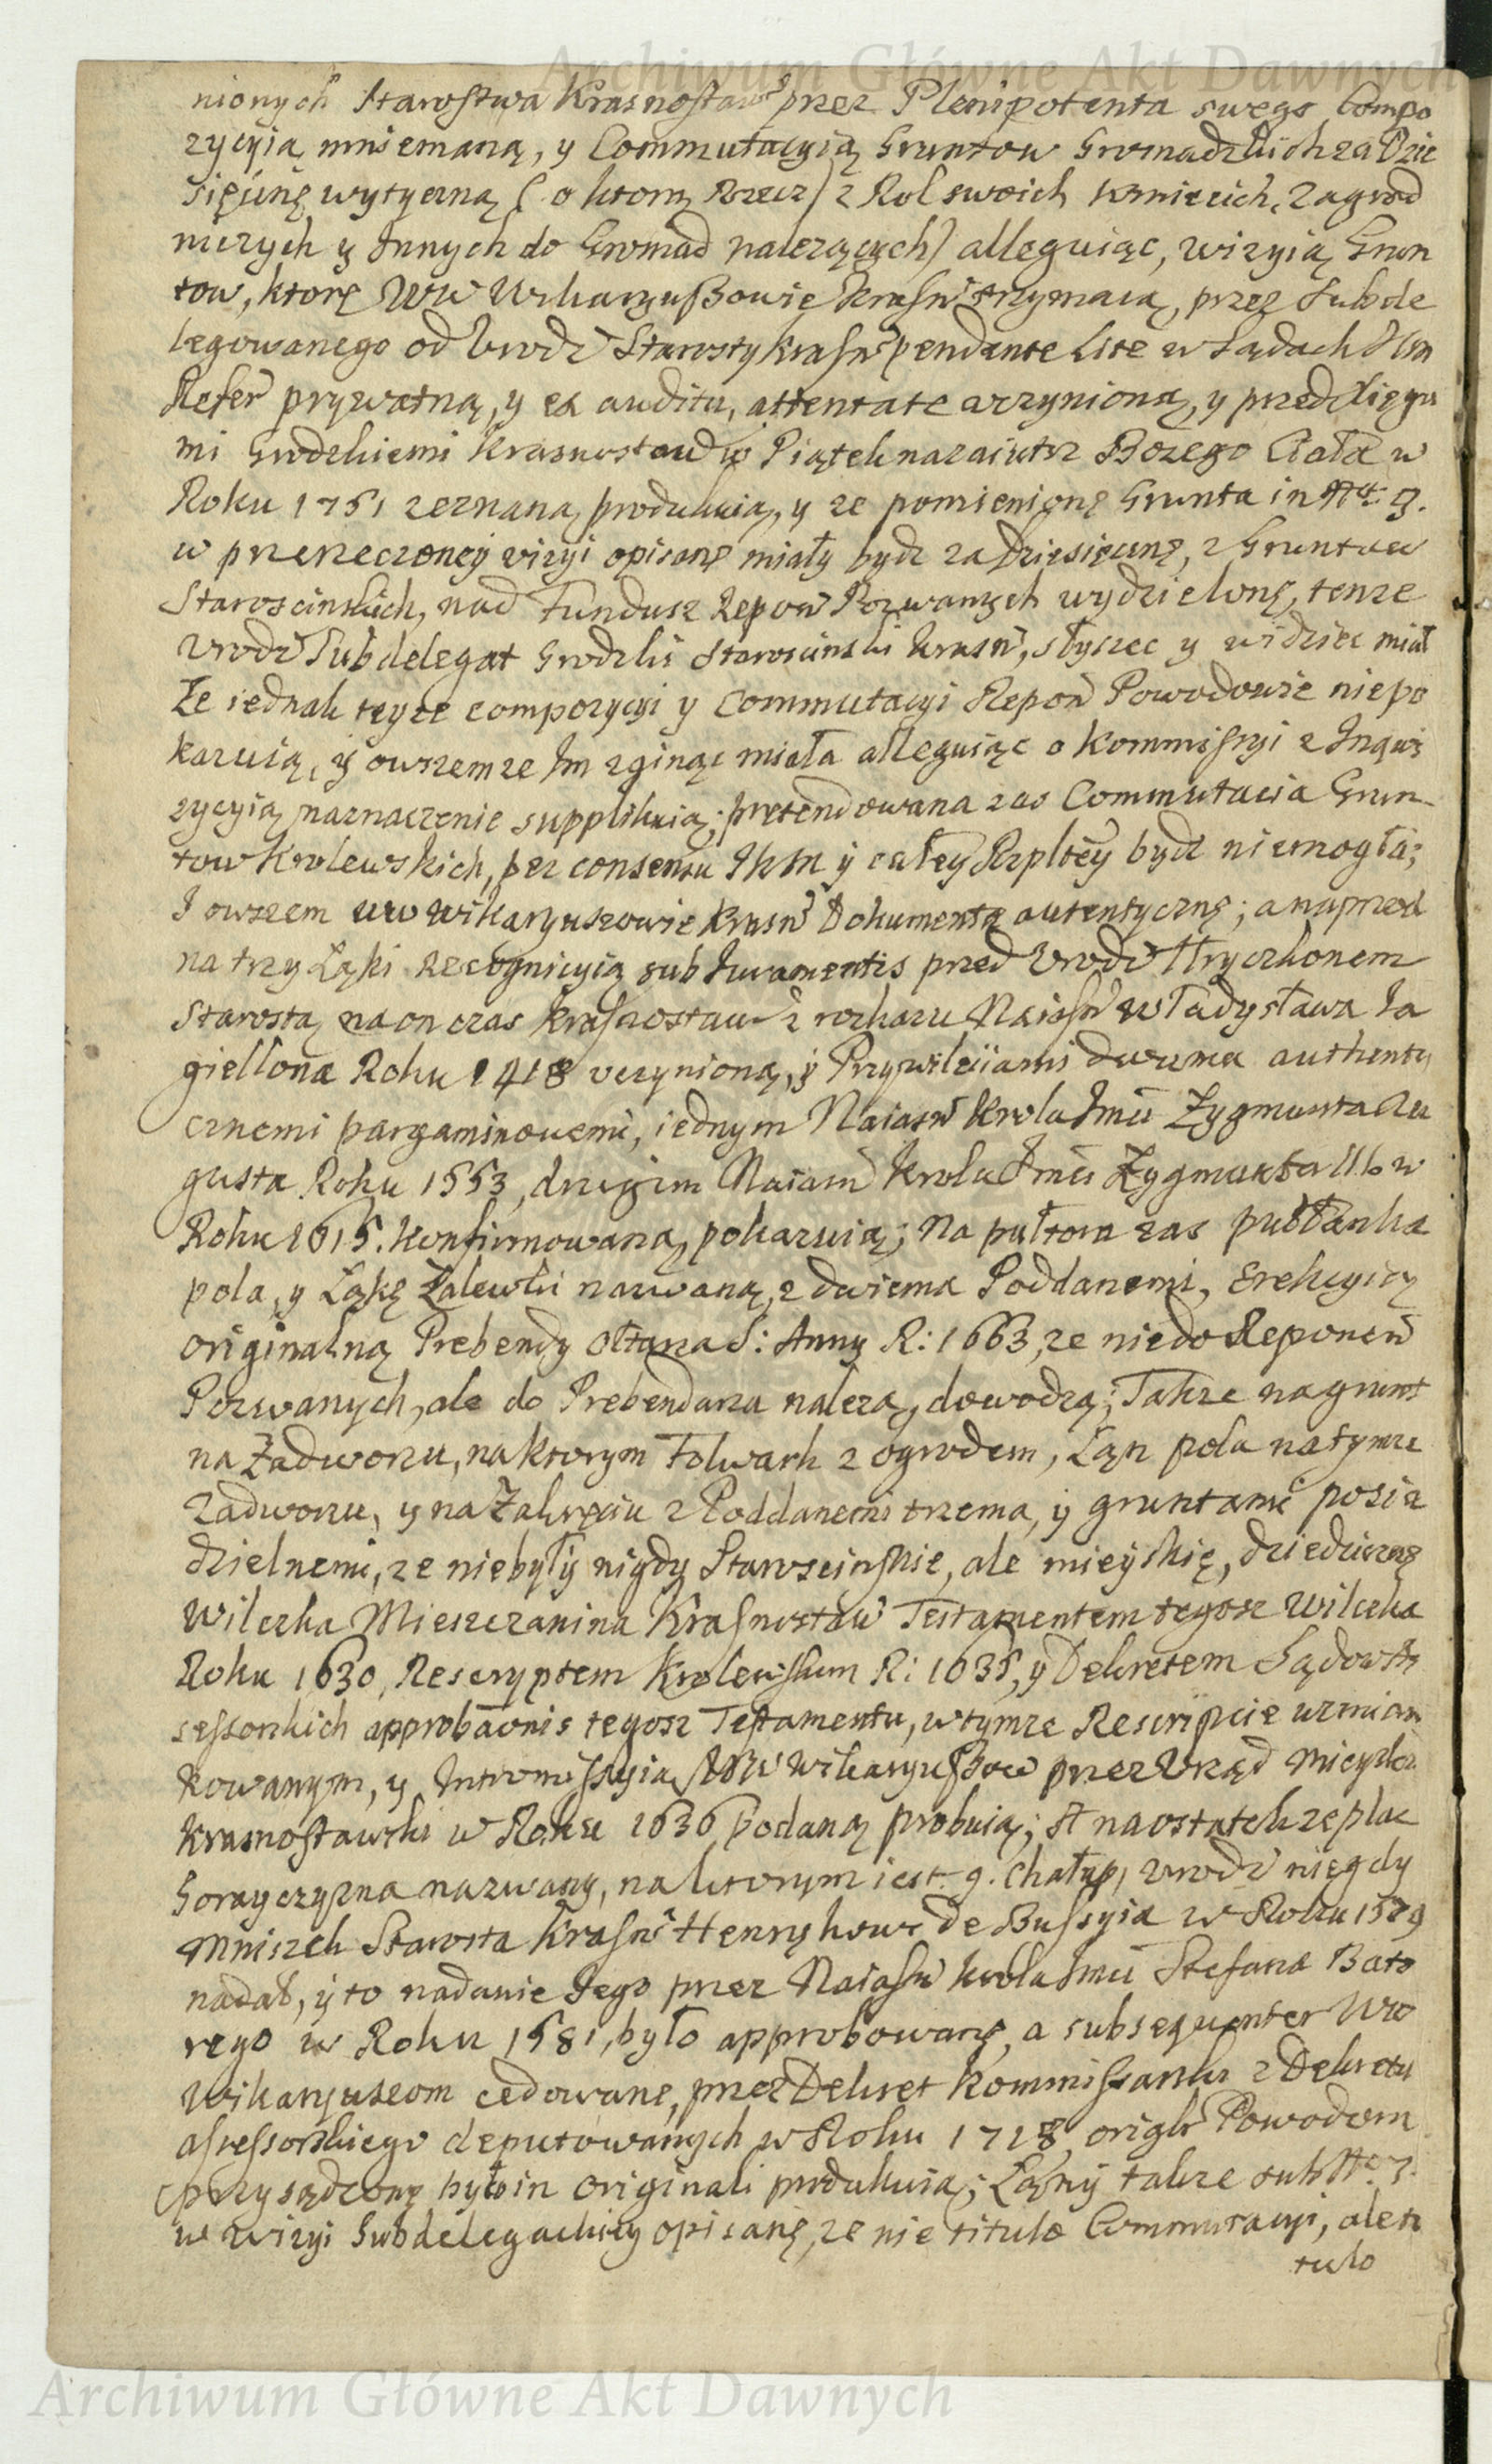 Archiwum Główne Akt Dawnych
nionych Starostwa Krasnostaw̃ przez Plenipotenta swego Compo
zycyią mniemaną, y Commutacyią Gruntow Gromadzkich za Dzie
sięcinę wytyczną (o ktorą Rzecz) z Rol swoich Kmiecich, Zagrod
niczych y Innych do Gromad nalezących) alleguiąc, wizyią Grun
tow, ktorę WW Wikaryuszowie Krasn̄ trzymaią, przez Subde
legowanego od Urodz̄ Starosty Krasn̄ pendente Lite w Sądach
Refer̄ prywatną, y ex auditu, attentate uczynioną, y przed Xięga
mi Grodzkiemi Krasnostaw̄ w Piątek nazaiutrz Bozego Ciała w
Roku 1751 zeznaną produkuią, y ze pomienionę Grunta in Nr̄o 9.
w przerzeczoney wizyi opisanę miały bydz za Dziesięcinę, z Gruntow
Staroscinskich, nad Fundusz Repow̄ Pozwanych wydzielonę, tenze
Urodz̄ Subdelegat Grodzki Staroscinski Krasn̄, słyszec y widziec miał
Ze iednak teyze compozycyi y Commutacyi Repon̄ Powodowie niepo
kazuią, y owszem ze Im zginąc miała alleguiąc o Kommissyi z Inqwi
zycyią naznaczenie supplikuią; pretendowana zas Commutacia Grun
tow Krolewskich, bez consensu JKM y całey Rzpltey bydz niemogła;
I owszem WW Wikaryuszowie Krasn̄ Dokumentą autentycznę; a naprzod
na trzy Łąki Recognicyią sub Juramentis przed Urodz̄ Hryczkonem
Starostą na on czas Krasnostaw̄ z rozkazu Naiasn̄ Władysława Ja
giellona Roku 1418 uczynioną, y Przywileiiami dwiema authenty
cznemi pargaminowemi, iednym Naiasn̄ Krola Jmći Zygmunta Au
gusta Roku 1553, drugim Naiasn̄ Krola Jmći Zygmunta III. w
Roku 1615. Konfirmowaną, pokazuią; Na pułtora zas pułłanka
pola, y Łąkę Zalewki nazwaną, z dwiema Poddanemi, Erekcyią
originalną Prebendy Ołtarza S: Anny R: 1663, ze nie do Reponen̄
Pozwanych, ale do Prebendarza nalezą, dowodzą; Takze na grunt
na Zadworzu, na ktorym Folwark z ogrodem, Łąn pola na tymze
Zadworzu, y na Zakręciu z Poddanemi trzema, y gruntami posia
dzielnemi, ze niebyły nigdy Staroscinskie, ale mieyskię, dziedzicznę
Wilczka Mieszczanina Krasnostaw̄ Testamentem tegosz Wilczka
Roku 1630, Rescryptem Krolewskim R: 1635, y Dekretem Sądow As
sessorskich approbāonis tegosz Testamentu, w tymze Rescripcie wzmian
kowanym, y Intromissyią WW Wikaryuszow przez Urząd Mieyski
Krasnostawski w Roku 1636 podaną probuią; A naostatek ze plac
Gorayczyzna nazwany, na ktorym iest. 9. Chałup, Urodz̄ niegdy
Mniszech Starosta Krasn̄ Henrykowi de Bussyia w Roku 1579
nadał, y to nadanie Jego przez Naiasn̄ Krola Jmći Stefana Bato
rego w Roku 1581, było approbowanę, a subsequenter WW
Wikaryuszom cedowanę, przez Dekret Kommissarski z Dekretu
assessorskiego deputowanych w Roku 1728 Powodom
przysądzonę było in Originali produkuią; Łąny takze sub Nr̄o 7.
w wizyi Subdelegackiey opisanę, ze nie titulo Commutacyi, ale ti
tulo
Archiwum Główne Akt Dawnych